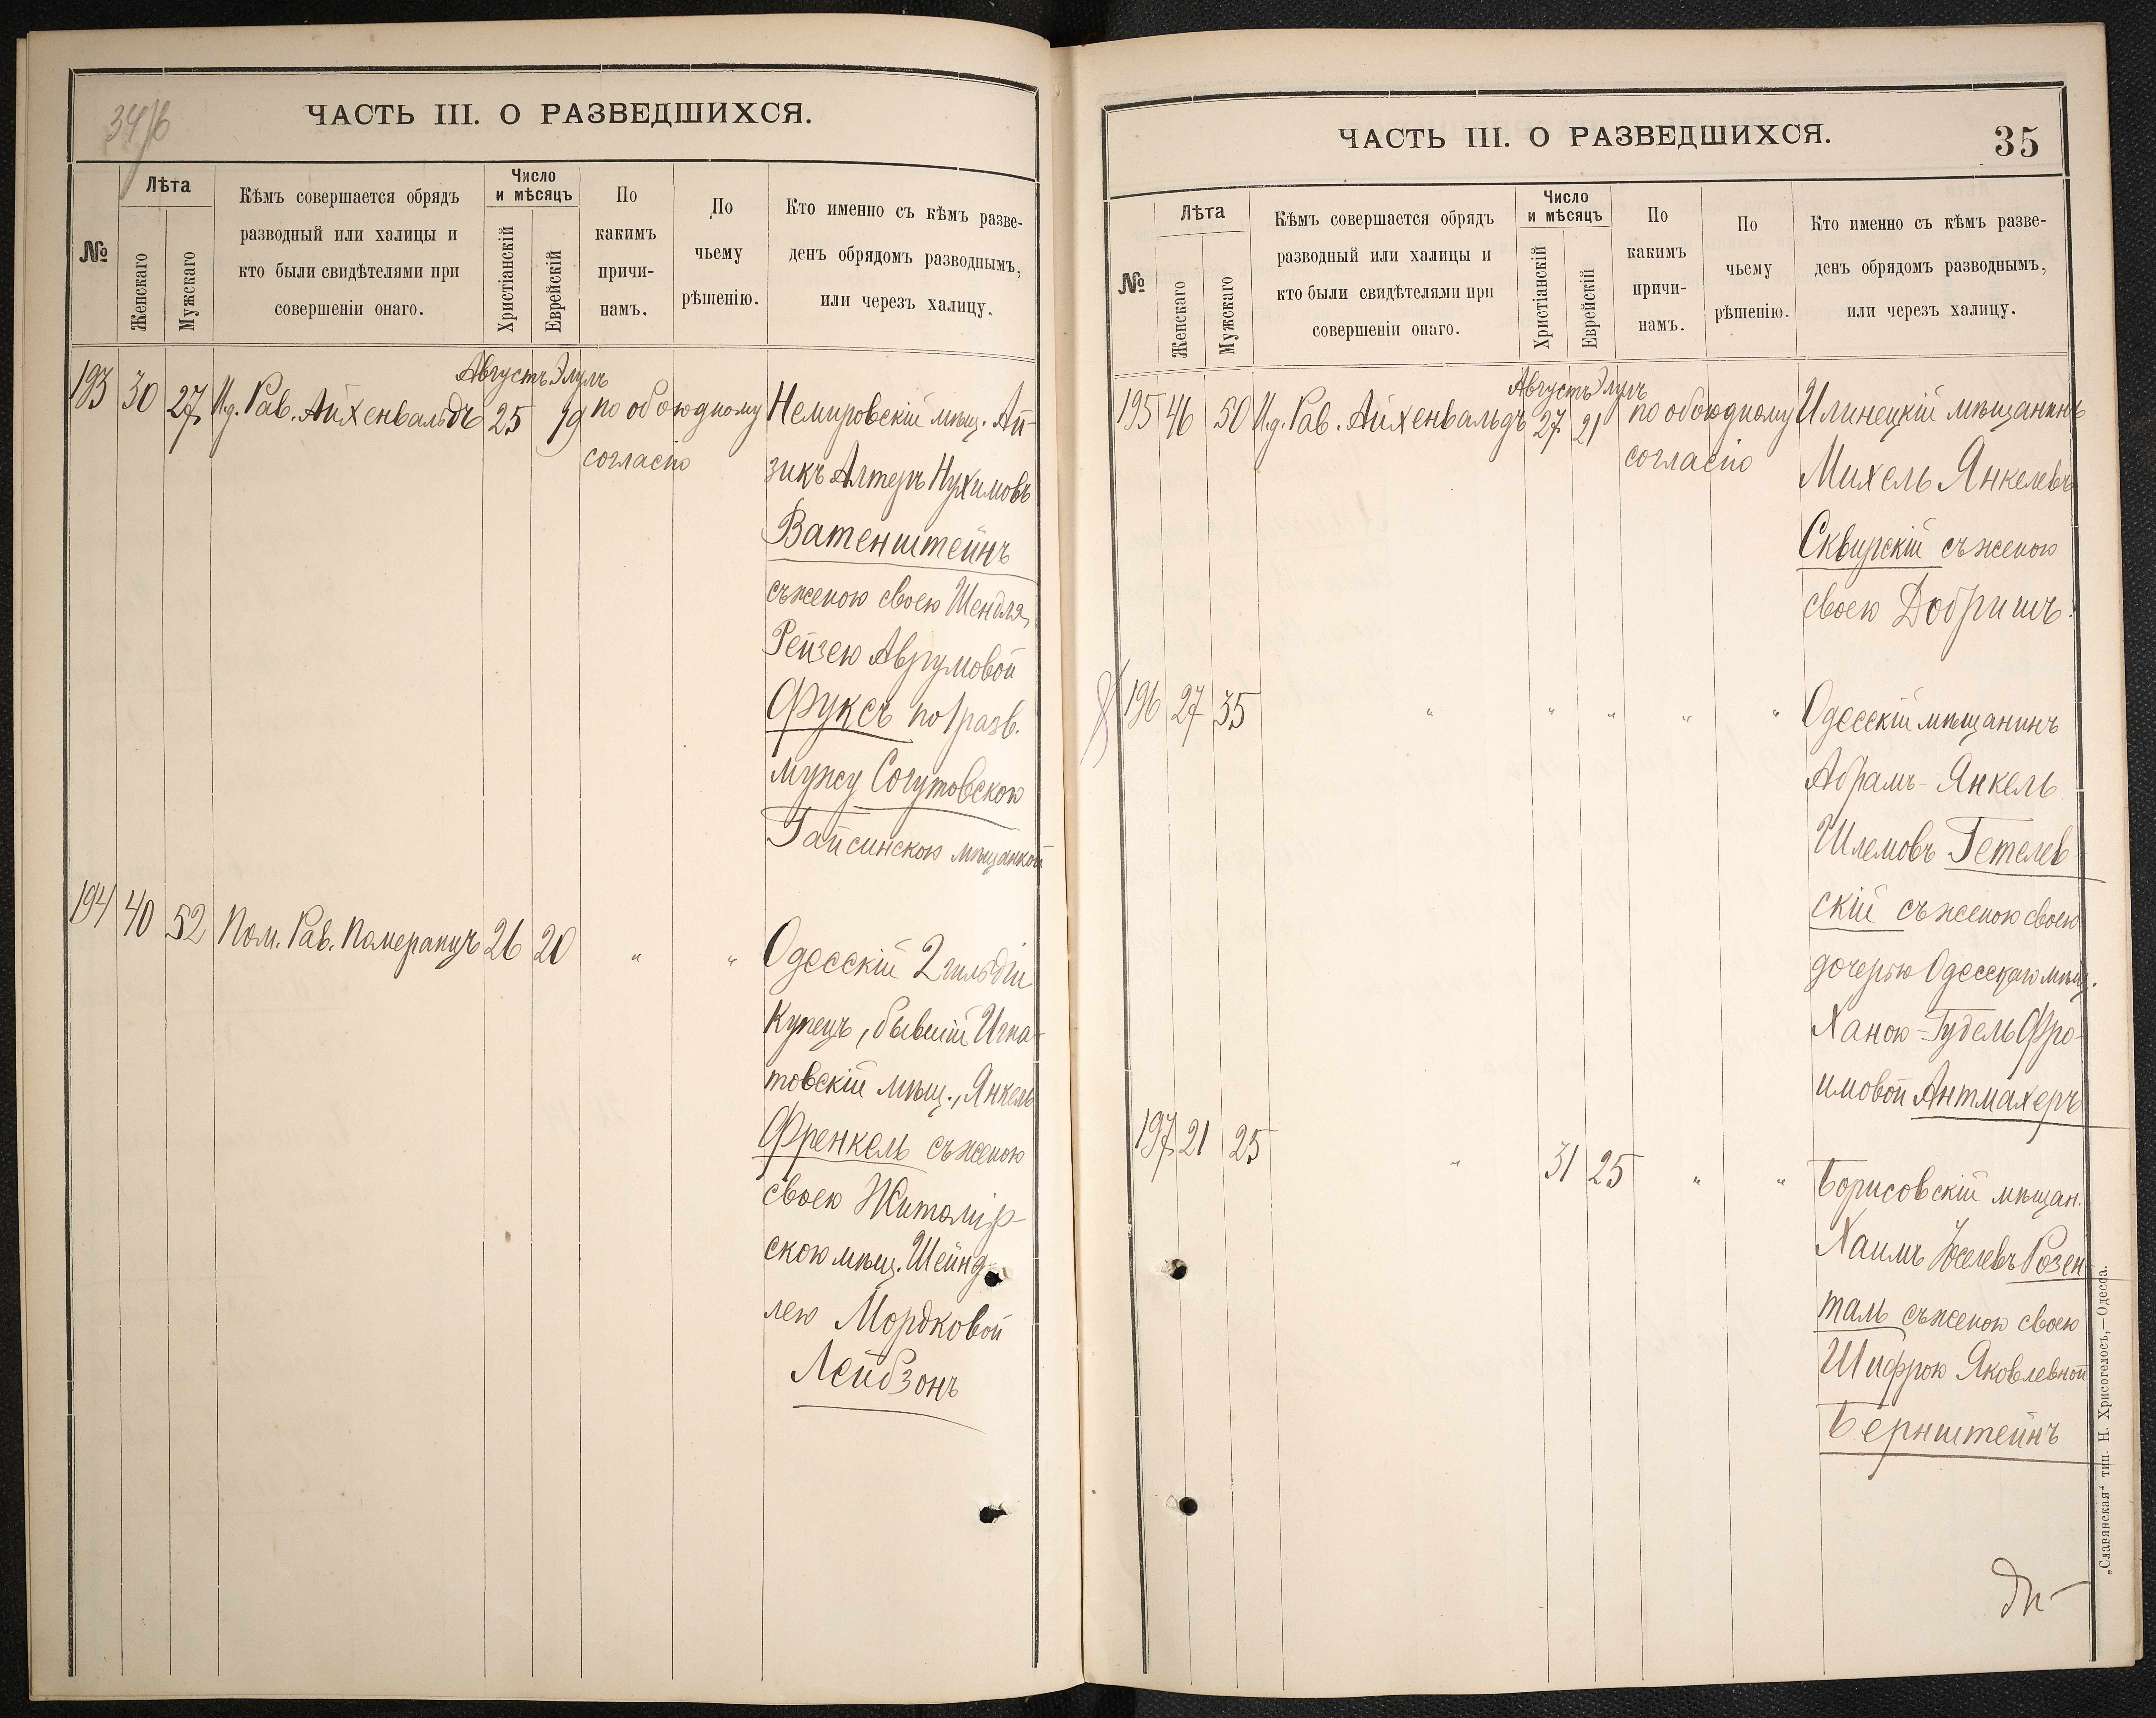 34/б
ЧАСТЬ III. О РАЗВЕДШИХСЯ.
№
Лѣта
Женскаго
Мужскаго
Кѣмъ совершается обрядъ
разводный или халицы и
кто были свидѣтелями при
совершеніи онаго.
Число
и мѣсяцъ
Христіанскій
Еврейскій
По
какимъ
причи-
намъ.
По
чьему
рѣшенію.
Кто именно съ кѣмъ разве-
денъ обрядомъ разводнымъ,
или черезъ халицу.
Августъ Элулъ
193 30 27 И.д. Рав. Айхенвальдъ 25 19 по обоюдному Немировскій мѣщ. Ай-
согласію
зикъ Алтеръ Нухимовъ
Ватенштейнъ
съ женою своею Шендля,
Рейзею Аврумовой
Фуксъ по 1 разв.
мужу Согутовскою
Гайсинскою мѣщанкой
194 40 52 Пом. Рав. Померанцъ 26 20 " " Одесскій 2 гильдіи
Купецъ, бывшій Игна-
товскій мѣщ., Янкель
Френкель съ женою
своею Житомір-
скою мѣщ. Шейнд-
лею Мордковой
Лейбзонъ
ЧАСТЬ III. О РАЗВЕДШИХСЯ.
35
№
Лѣта
Женскаго
Мужскаго
Кѣмъ совершается обрядъ
разводный или халицы и
кто были свидѣтелями при
совершеніи онаго.
Число
и мѣсяцъ
Христіанскій
Еврейскій
По
какимъ
причи-
намъ.
По
чьему
рѣшенію.
Кто именно съ кѣмъ разве-
денъ обрядомъ разводнымъ,
или черезъ халицу.
Августъ Элулъ
195 46 50 И.д. Рав. Айхенвальдъ 27 21 по обоюдному Илинецкій мѣщанинъ
согласію
Михель Янкелевъ
Сквирскій съ женою
своею Добришъ.
196 27 35 " " " " " Одесскій мѣщанинъ
Абрамъ-Янкель
Шлемовъ Гетелев-
скій съ женою своею
дочерью Одесскаго мѣщ.
Ханою-Гудель Фро-
имовой Антмахеръ
197 21 25 " 31 25 " " Борисовскій мѣщан.
Хаимъ Іоселевъ Розен-
таль съ женою своею
Шифрою Яковлевной
Бернштейнъ
„Славянская“ тип. Н. Хрисогелосъ,—Одесса.